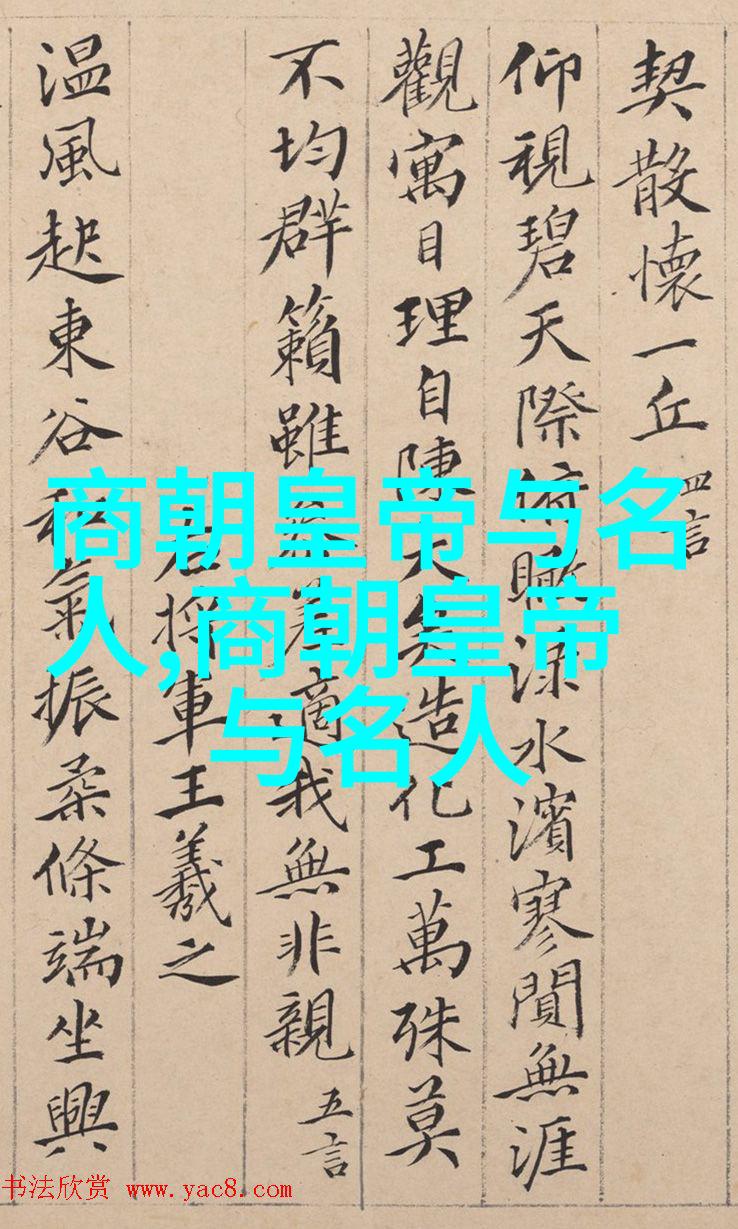 契散懷一丘 四言
仰視碧天際俯瞰淥水濱寥閴無涯
觀寓目理自陳大矣造化工萬殊莫
不均群籟雖參差適我無非親 五言
右将軍王羲之
温風起東谷和氣振柔條端坐興
商朝皇帝与名
人,商朝皇帝
与名人
书法欣赏 www.yac8.com